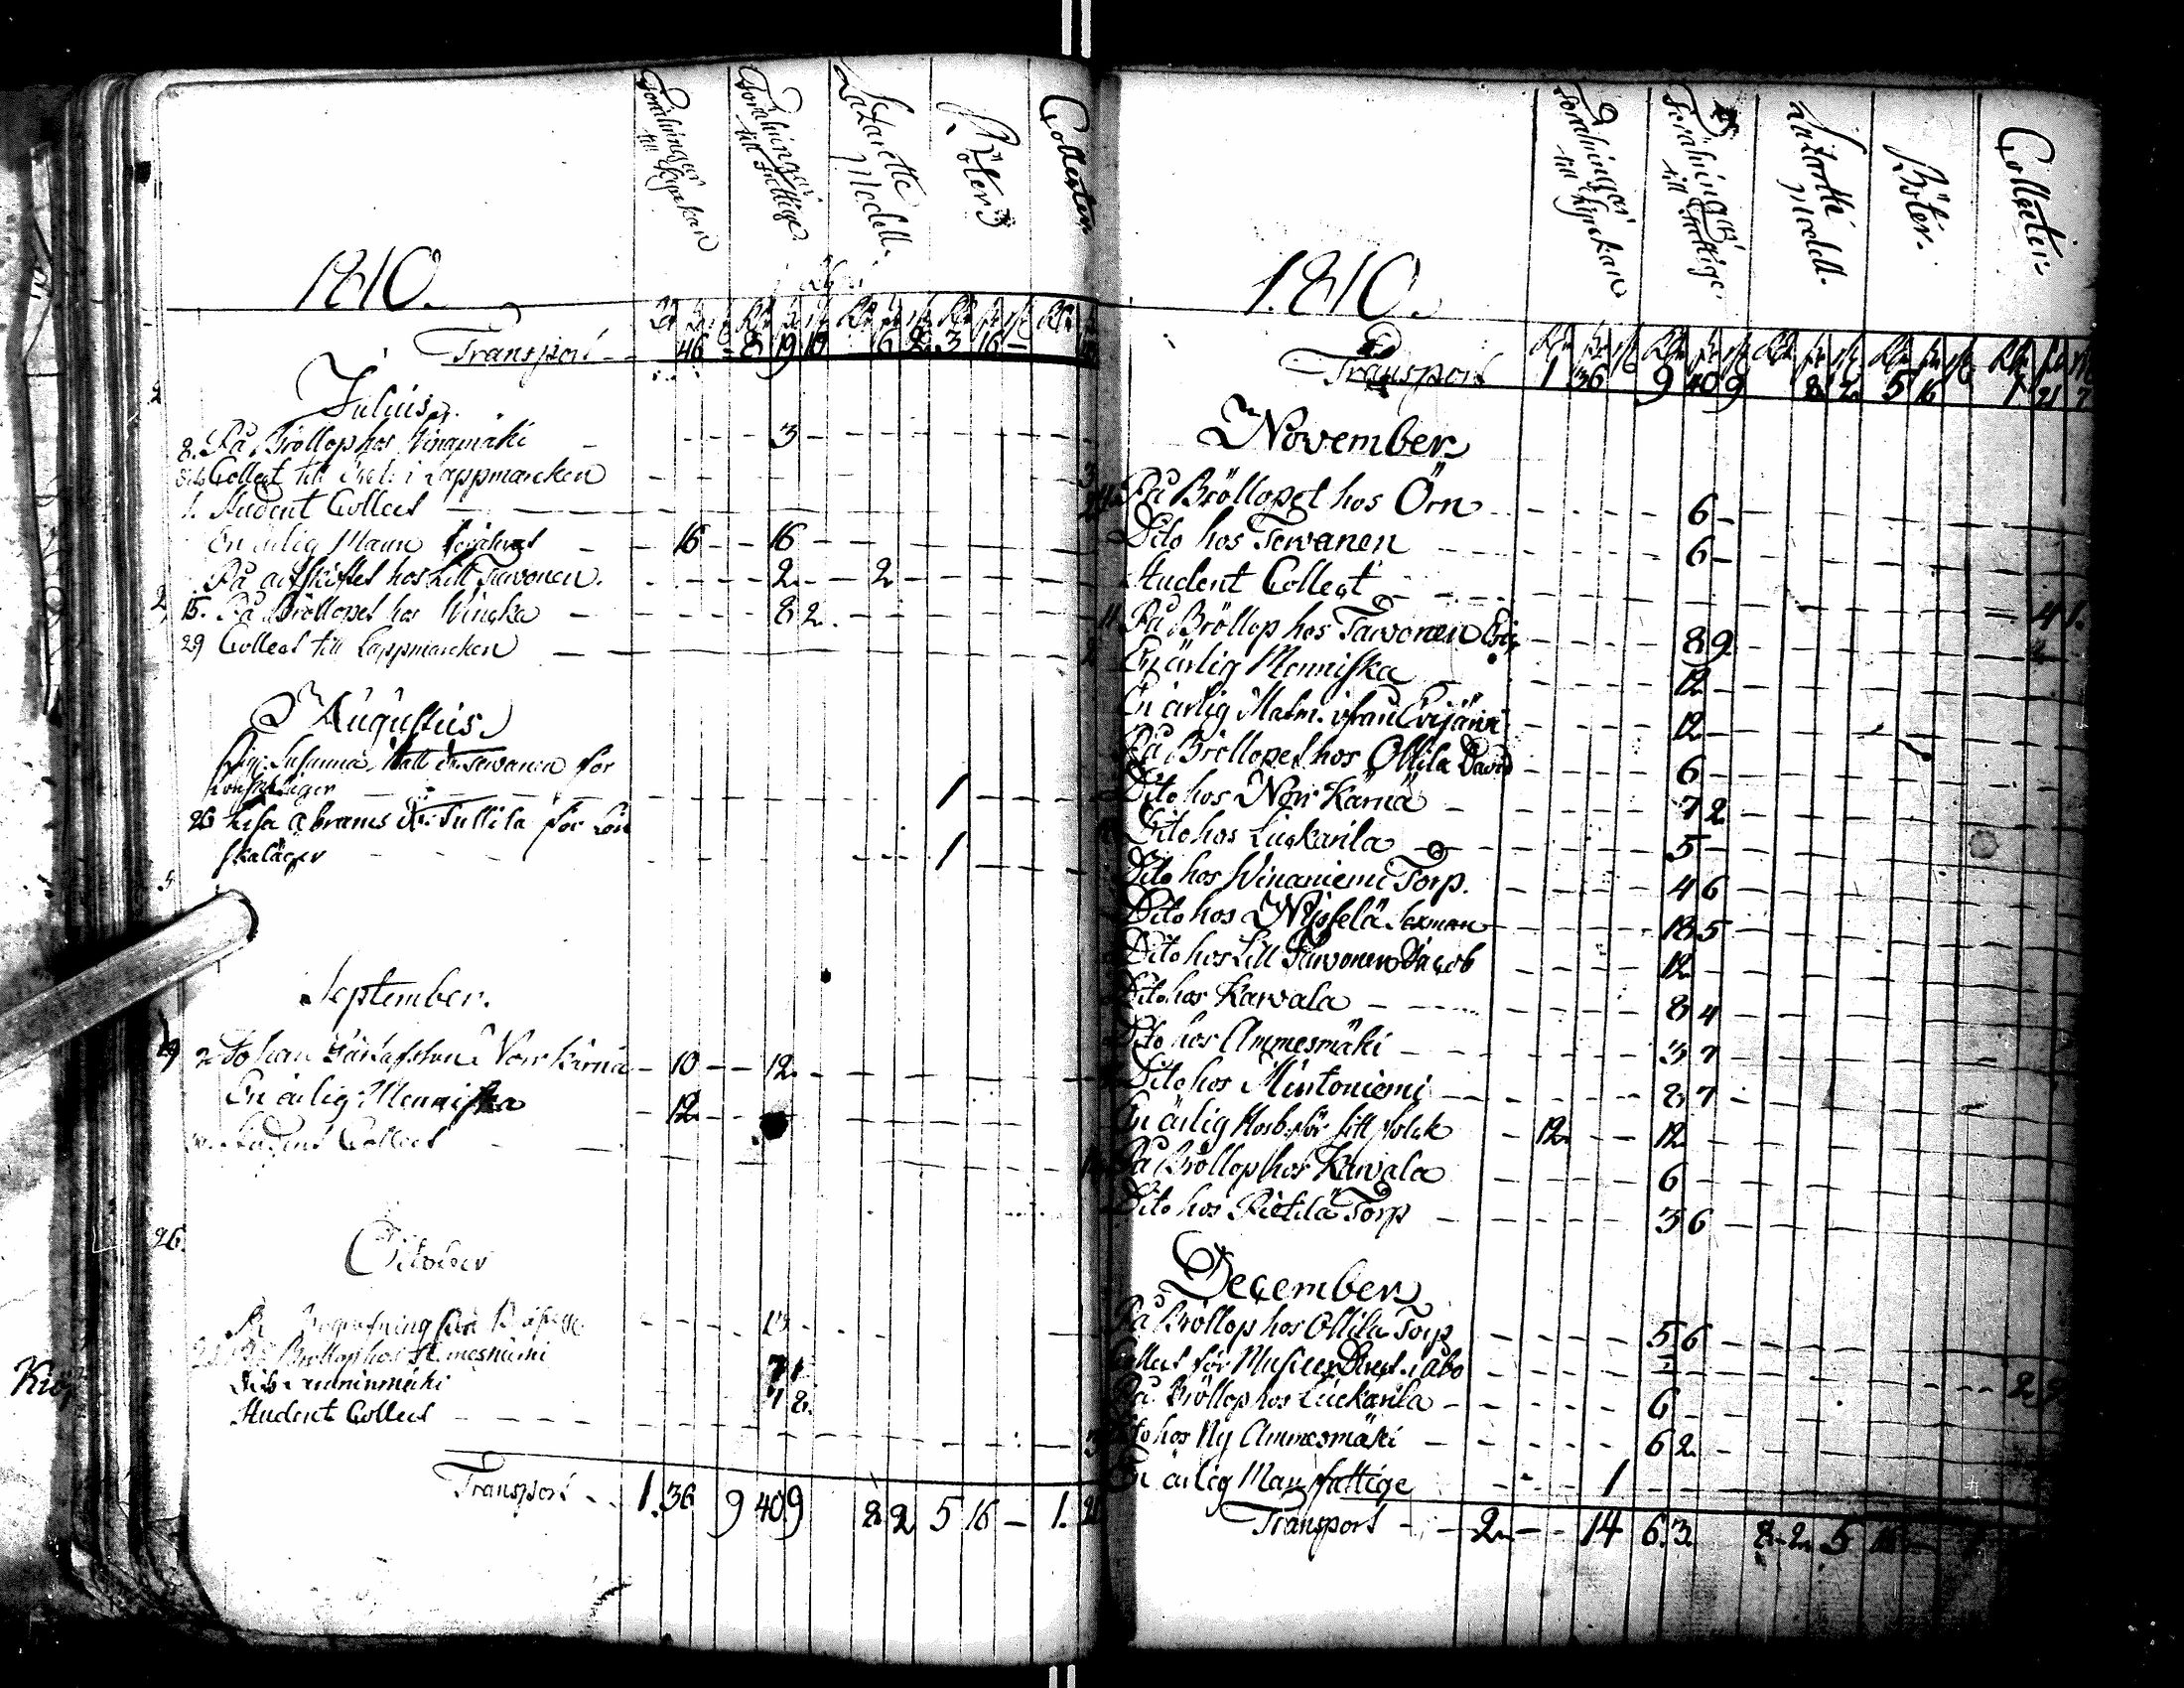 1810.
Förähringar till Kyrckan
Förähringar till Fattige
Lazaretts Medell.
Böter
Collecter
Transport - - 46 - 8 19 10 6 2 3 16 -
Julius.
8. På Bröllop hos Winamäki - - - - 3 - - -
Collect till i Lappmarcken - - -
1. Student Collect - - -
En ärlig Mann förährat - - 16 - - 16 - - -
På afskiftet hos Lill Tarvonen. - - - 2 - - 2 - - -
15. På Bröllopet hos - - - 8 2. - - -
29 Collect till Lappmarcken - - -
Augustus.
Pig. Susanna Matts dr. Tervanen för
Lönskaläger - - - 1 - - -
26 Lisa Abrams dr. Tullila för Lön
skaläger - - - 1 - - -
September.
2 Johan Gustafsson Norr Kärnä - 10 - - 12 - - -
En ärlig Menniska - 12 - -
Student Collect - - -
26.
October
Begrafning
På Bröllop hos 7 1
Dito 7 2.
Student Collect - - -
Transport - - 1. 36 9 40 9 8 2 5 16 - 1. 21
1810.
Förähringar till Kyrckan
Förähringar till Fattige.
Lazarett Medell.
Böter.
Collecter
Transport 1 36 9 40 9 8 2 5 16 1 21 7
November
På Bröllopet hos Örn - - - 6 - - -
Dito hos Terwanen - - - 6 - - -
Student Collect - - - 4 1.
11 På Bröllop hos Tarvonen - - - 8 9 - - -
En ärlig Menniska - - - 12 - - -
En ärlig Matm. ifrån Evijärvi - - - 12 - - -
På Bröllopet hos Ollila David - - - 6 - - -
Dito hos Norr Kärnä - - - 7 2 - - -
Dito hos Luckarila - - - 5 - - -
Dito hos Winaniemi Torp. - - - 4 6 - - -
Dito hos Nysselä Sexman - - - 18 5 - - -
Dito hos Lill Tarvonen Jacob - - - 12 - - -
Dito hos Karvala - - - 8 4 - - -
Dito hos Ammesmäki - - - 3 7 - - -
Dito hos Mintoniemi - - - 8 7 - - -
En ärlig Husb. för sitt folck - 12 - - 12 - - -
På Bröllop hos Karvala 6 - - -
Dito hos Pietilä Torp - - - 3 6 - - -
December
På Bröllop hos Ollila Torp - - - 5 6 - - -
Collect för Musices Direct. i Åbo - - - 2
På Bröllop hos Luckarila - - - 6 - - -
Dito hos Ny Ammesmäki - - - 6 2 - - -
En ärlig Man fattige - - - 1 - - -
Transport - - 2 - - 14 6 3. 8 2 5 16